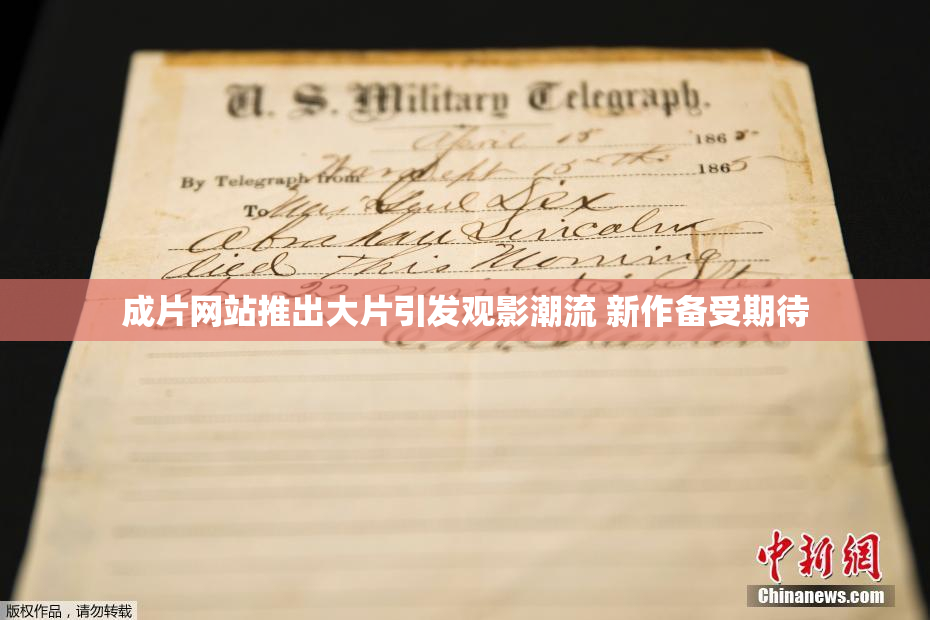 U. S. Military Telegraph.
April 15 1865
By Telegraph from War Dept 15th 1865
To Maj Genl Dix
Abraham Lincoln
died This Morning
at 22 minutes after
成片网站推出大片引发观影潮流 新作备受期待
E. M. Stanton
中新网
Chinanews.com
版权作品，请勿转载